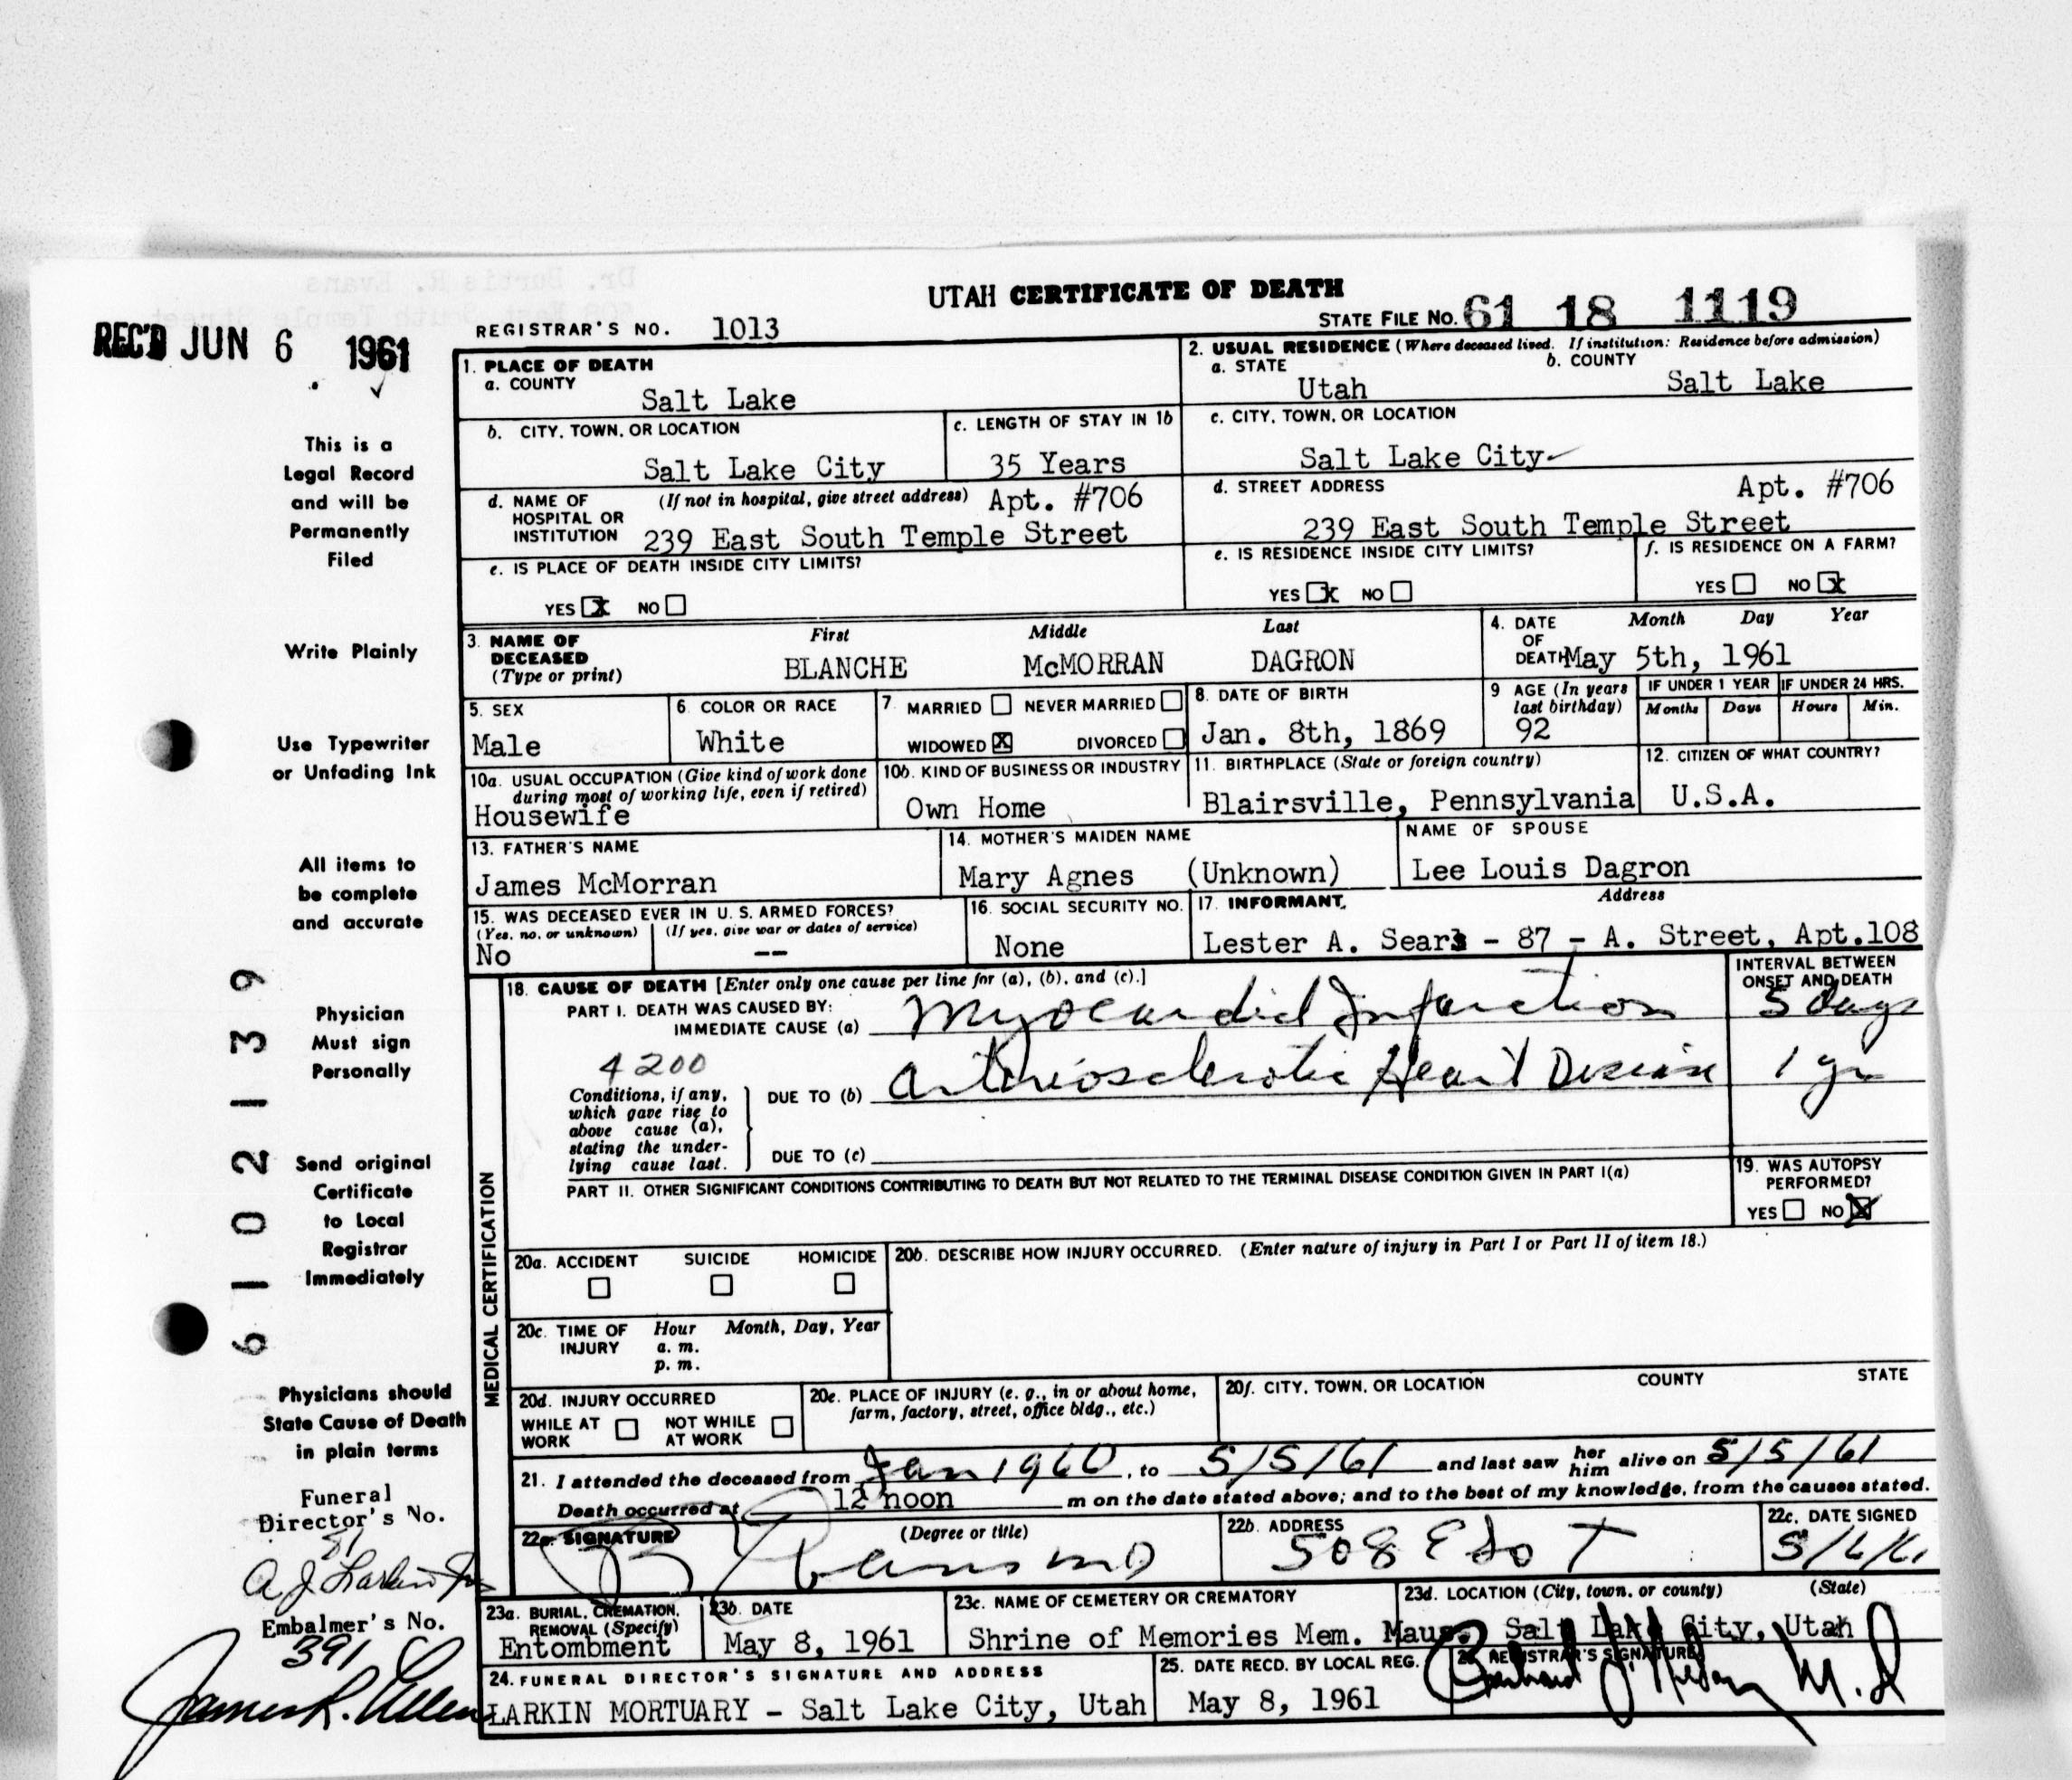 UTAH CERTIFICATE OF DEATH
REC'D JUN 6 1961
REGISTRAR'S NO. 1013
STATE FILE NO. 61 18 1119
1. PLACE OF DEATH
a. COUNTY
Salt Lake
2. USUAL RESIDENCE (Where deceased lived. If institution: Residence before admission)
a. STATE
Utah
b. COUNTY
Salt Lake
b. CITY, TOWN, OR LOCATION
Salt Lake City
c. LENGTH OF STAY IN 1b
35 Years
c. CITY, TOWN, OR LOCATION
Salt Lake City
d. NAME OF HOSPITAL OR INSTITUTION
(If not in hospital, give street address) Apt. #706
239 East South Temple Street
d. STREET ADDRESS
Apt. #706
239 East South Temple Street
e. IS PLACE OF DEATH INSIDE CITY LIMITS?
YES x NO
e. IS RESIDENCE INSIDE CITY LIMITS?
YES x NO
f. IS RESIDENCE ON A FARM?
YES NO x
3. NAME OF DECEASED (Type or print)
First Middle Last
BLANCHE McMORRAN DAGRON
4. DATE OF DEATH
Month Day Year
May 5th, 1961
5. SEX
Male
6. COLOR OR RACE
White
7. MARRIED NEVER MARRIED
WIDOWED X DIVORCED
8. DATE OF BIRTH
Jan. 8th, 1869
9 AGE (In years last birthday)
92
IF UNDER 1 YEAR IF UNDER 24 HRS.
Months Days Hours Min.
10a. USUAL OCCUPATION (Give kind of work done during most of working life, even if retired)
Housewife
10b. KIND OF BUSINESS OR INDUSTRY
Own Home
11. BIRTHPLACE (State or foreign country)
Blairsville, Pennsylvania
12. CITIZEN OF WHAT COUNTRY?
U.S.A.
13. FATHER'S NAME
James McMorran
14. MOTHER'S MAIDEN NAME
Mary Agnes (Unknown)
NAME OF SPOUSE
Lee Louis Dagron
15. WAS DECEASED EVER IN U. S. ARMED FORCES?
(Yes, no, or unknown) (If yes, give war or dates of service)
No --
16. SOCIAL SECURITY NO.
None
17. INFORMANT, Address
Lester A. Sears - 87 - A. Street, Apt.108
MEDICAL CERTIFICATION
18. CAUSE OF DEATH [Enter only one cause per line for (a), (b), and (c).]
INTERVAL BETWEEN ONSET AND DEATH
PART I. DEATH WAS CAUSED BY:
IMMEDIATE CAUSE (a) Myocardial Infarction 5 days
4200
Conditions, if any, which gave rise to above cause (a), stating the underlying cause last.
DUE TO (b) Arteriosclerotic Heart Disease 1 yr
DUE TO (c)
PART II. OTHER SIGNIFICANT CONDITIONS CONTRIBUTING TO DEATH BUT NOT RELATED TO THE TERMINAL DISEASE CONDITION GIVEN IN PART I(a)
19. WAS AUTOPSY PERFORMED?
YES NO X
20a. ACCIDENT SUICIDE HOMICIDE
20b. DESCRIBE HOW INJURY OCCURRED. (Enter nature of injury in Part I or Part II of item 18.)
20c. TIME OF INJURY
Hour Month, Day, Year
a. m.
p. m.
20d. INJURY OCCURRED
WHILE AT WORK NOT WHILE AT WORK
20e. PLACE OF INJURY (e. g., in or about home, farm, factory, street, office bldg., etc.)
20f. CITY, TOWN, OR LOCATION COUNTY STATE
21. I attended the deceased from Jan 1960, to 5/5/61 and last saw her him alive on 5/5/61
Death occurred at 12 noon m on the date stated above; and to the best of my knowledge, from the causes stated.
22a. SIGNATURE (Degree or title)
Evans MD
22b. ADDRESS
508 E So T
22c. DATE SIGNED
23a. BURIAL, CREMATION, REMOVAL (Specify)
Entombment
23b. DATE
May 8, 1961
23c. NAME OF CEMETERY OR CREMATORY
Shrine of Memories Mem. Maus.
23d. LOCATION (City, town, or county) (State)
Salt Lake City, Utah
24. FUNERAL DIRECTOR'S SIGNATURE AND ADDRESS
LARKIN MORTUARY - Salt Lake City, Utah
25. DATE RECD. BY LOCAL REG.
May 8, 1961
REGISTRAR'S SIGNATURE
M.D
This is a
Legal Record
and will be
Permanently
Filed
Write Plainly
Use Typewriter
or Unfading Ink
All items to
be complete
and accurate
Physician
Must sign
Personally
Send original
Certificate
to Local
Registrar
Immediately
Physicians should
State Cause of Death
in plain terms
Funeral
Director's No.
51
A J Larkin Jr
Embalmer's No.
391
James R. Allen
61021-139